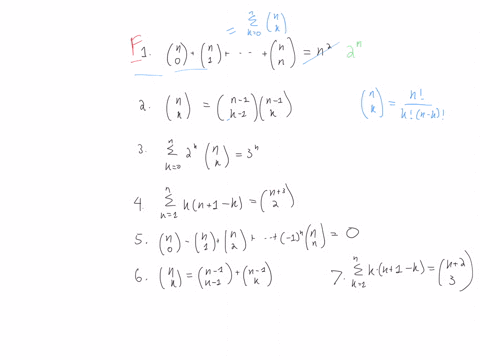 = \sum_{k=0}^{n} \binom{n}{k}
F 1. \binom{n}{0} + \binom{n}{1} + \cdots + \binom{n}{n} = n^2 2^n
2. \binom{n}{k} = \binom{n-1}{k-1} \binom{n-1}{k}
\binom{n}{k} = \frac{n!}{k!(n-k)!}
3. \sum_{k=0}^{n} 2^k \binom{n}{k} = 3^n
4 \sum_{k=1}^{n} k(n+1-k) = \binom{n+3}{2}
5. \binom{n}{0} - \binom{n}{1} + \binom{n}{2} + \cdots + (-1)^n \binom{n}{n} = 0
6. \binom{n}{k} = \binom{n-1}{k-1} + \binom{n-1}{k}
7. \sum_{k=1}^{n} k \cdot (n+1-k) = \binom{n+2}{3}